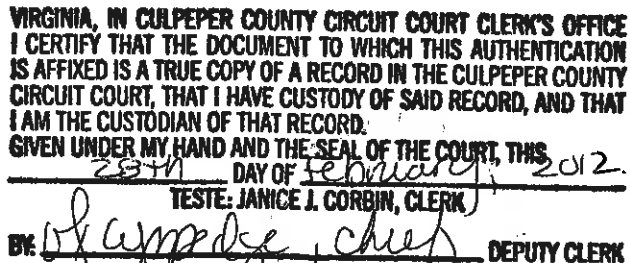 VIRGINIA, IN CULPEPER COUNTY CIRCUIT COURT CLERK'S OFFICE
I CERTIFY THAT THE DOCUMENT TO WHICH THIS AUTHENTICATION
IS AFFIXED IS A TRUE COPY OF A RECORD IN THE CULPEPER COUNTY
CIRCUIT COURT, THAT I HAVE CUSTODY OF SAID RECORD, AND THAT
I AM THE CUSTODIAN OF THAT RECORD.
GIVEN UNDER MY HAND AND THE SEAL OF THE COURT, THIS
28th DAY OF February, 2012.
TESTE: JANICE J. CORBIN, CLERK
BY: , chief DEPUTY CLERK